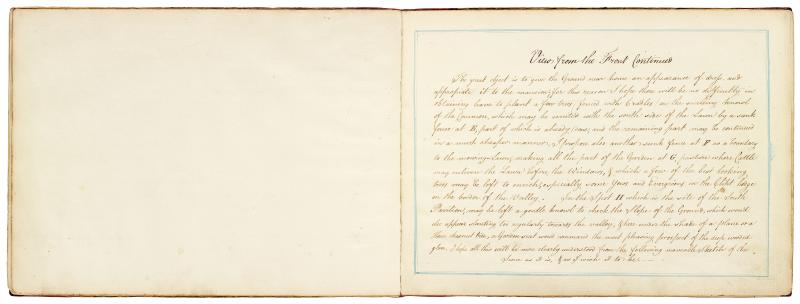 View from the Front Continued
The great object is to give the Ground near home an appearance of dress, and
appropriate it to the mansion; for this reason I hope there will be no difficulty in
obtaining leave to plant a few trees, fenced with Cradles, on the swelling knowl
of the Common, which may be united with the south side of the Lawn by a sunk
fence at E, part of which is already done, and the remaining part may be continued
in a much cheaper manner. I propose also another sunk fence at F as a boundary
to the mowing-Lawn, making all the part of the Garden at G, pasture where Cattle
may enliven the Lawn before the Windows, & which a few of the best looking
trees may be left to enrich, especially some Yews and Evergreens in the Clipt hedge
on the border of the Valley. In the Spot H which is the site of the South
Pavilion, may be left a gentle knowl to check the slope of the Ground, which would
else appear slanting too regularly towards the valley, & here under the shade of a plane or a
Horse chesnut tree, a Garden seat would command the most pleasing prospect of the deep wooded
glen. I hope all this will be more clearly understood from the following sketch of the
scene as it is, & as I wish it to be.